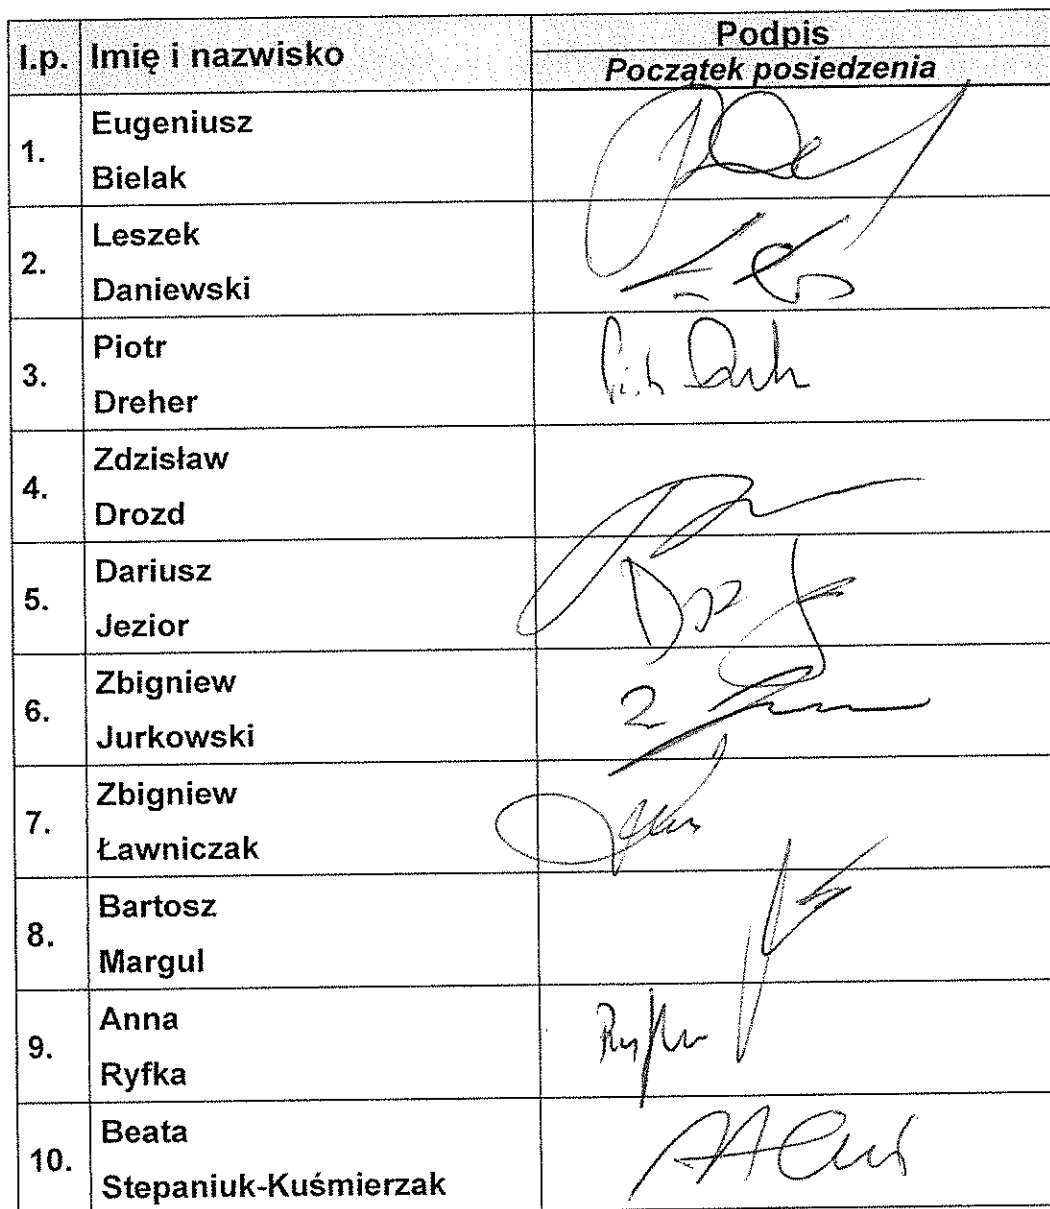 l.p. Imię i nazwisko Podpis
Początek posiedzenia
1. Eugeniusz
Bielak
2. Leszek
Daniewski
3. Piotr
Dreher
4. Zdzisław
Drozd
5. Dariusz
Jezior
6. Zbigniew
Jurkowski
7. Zbigniew
Ławniczak
8. Bartosz
Margul
9. Anna
Ryfka
10. Beata
Stepaniuk-Kuśmierzak